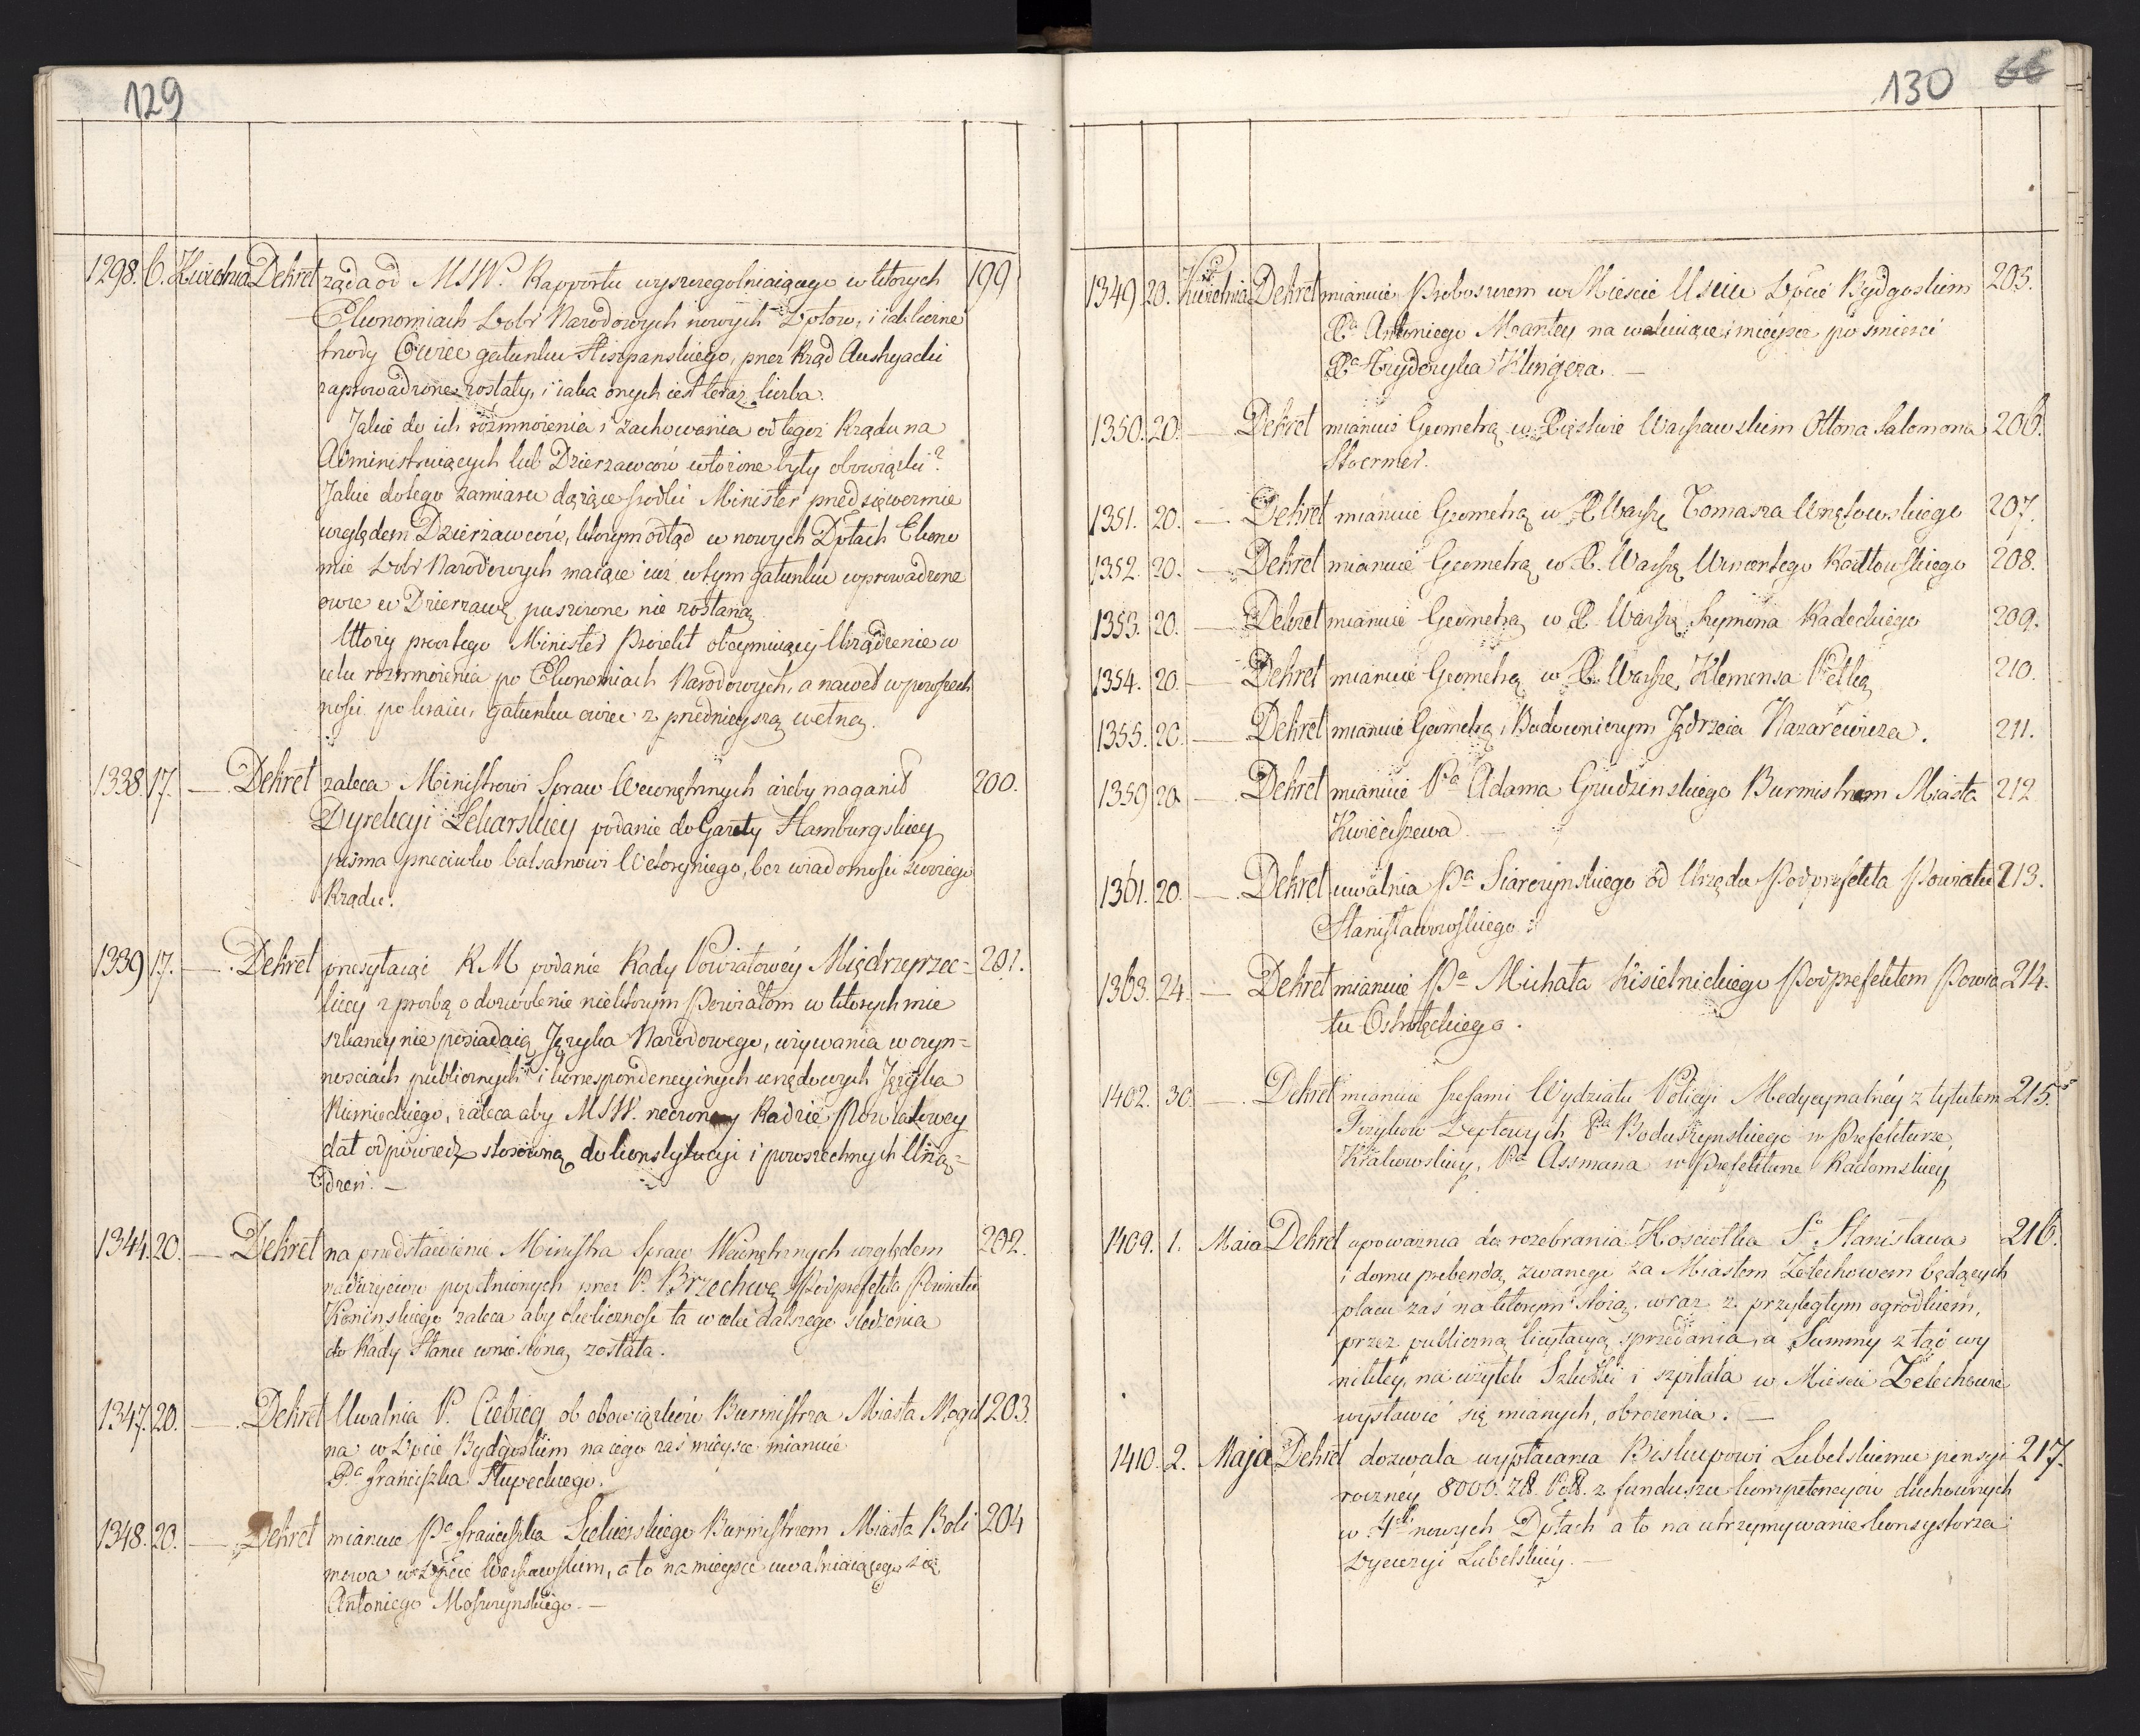 129
1298. 6. Kwietnia Dekret żąda od MSW. Rapportu wyszczegolniaiącego w ktorych 199
Ekonomiach Dobr Narodowych nowych Dptow, i iak liczne
trzody Owiec gatunku Hiszpanskiego, przez Rząd Austryacki
zaprowadzone zostały, i iaka onych iest teraz liczba.
Jakie do ich rozmnożenia i zachowania od tegoż Rządu na
Administruiących lub Dzierzawcow włożone były obowiązki?
Jakie do tego zamiaru dążące srodki Minister przedsięwezmie
względem Dzierżawcow, ktorym odtąd w nowych Dptach Ekono
mie Dobr Narodowych maiące iuż w tym gatunku wprowadzone
owce w Dzierzawę puszczone nie zostaną
Ułoży procz tego Minister Proiekt obeymuiący Urządzenie w
celu rozmnożenia po Ekonomiach Narodowych, a nawet w powszech
ności po kraiu, gatunku owiec z przednieyszą wełną.
1338. 17. — Dekret zaleca Ministrowi Spraw Wewnętrznych ażeby naganił 200.
Dyrekcyi Lekarskiey podanie do Gazety Hamburgskiey
pisma przeciwko balsamowi bez wiadomości swoiego
Rządu.
1339 17. — Dekret przesyłaiąc RM podanie Rady Powiatowéy Międzyrzec= 201.
kiey z prozbą o dozwolenie niektorym Powiatom w ktorych mie
szkancy nie posiadaią Języka Narodowego, używania w czyn=
nosciach publicznych i korrespondencyinych urzędowych Języka
Niemieckiego, zaleca aby MSW. rzeczoney Radzie Powiatowey
dał odpowiedz stosowną do konstytucyi i powszechnych Urzą=
dzeń. —
1344. 20. — Dekret na przedstawienie Ministra Spraw Wewnętrznych względem 202.
nadużyciow popełnionych przez P. Brzechwę Podprefekta Powiatu
Koninskiego zaleca aby okoliczność ta w celu dalszego sledzenia
do Rady Stanu wniesiona, została.
1347. 20. — Dekret Uwalnia P. Ciebieg ob obowiązkow Burmistrza Miasta Mogil 203.
na w Dpcie Bydgoskim na iego zaś mieysce mianuie
Pa Franciszka Słupeckiego.
1348. 20. — Dekret mianuie Pa Franciszka Burmistrzem Miasta Boli 204
mowa w Dpcie Warszawskim, a to na mieysce uwalniaiącego się
Antoniego Moszczynskiego. —
130 66
1349 20. Kwietnia Dekret mianuie Proboszczem w Miescie Usciu Dpcie Bydgoskim 205.
Xa Antoniego Mantey na wakuiące mieysce po smierci
Xa Frydryka Klingera. —
1350. 20. — Dekret mianuie Geometrą w Xięstwie Warszawskim Ottona Salomona 206.
Stoermer.
1351. 20. — Dekret mianuie Geometrą w X Warszę Tomasza 207.
1352. 20. — Dekret mianuie Geometrą w X. Warszę Wincentego 208.
1353. 20. — Dekret mianuie Geometrą w X Warszę Szymona Radeckiego 209.
1354. 20. — Dekret mianuie Geometrą w X. Warszę Klemensa Petką 210.
1355. 20. — Dekret mianuie Geometrą i Budowniczym Jędrzeia Nazarewicza. 211.
1359 20 — Dekret mianuie Pa Adama Grudzinskiego Burmistrzem Miasta 212
Kwieciszewa —
1361. 20. — Dekret uwalnia Pa Siarczynskiego od Urzędu Podprefekta Powiatu 213.
Stanisławowskiego
1363. 24. — Dekret mianuie Pa Michała Kisielnickiego Podprefektem Powia 214.
tu Ostrołęckiego.
1402. 30. — Dekret mianuie Szefami Wydziału Policyi Medycynalnéy z tytułem 215.
Fizykow Deptowych Pa Boduszynskiego w Prefekturze
Krakowskiey, Pa Assmana w Prefekturze Radomskiey
1409. 1. Maia Dekret upoważnia do rozebrania Kosciołka So Stanisława 216.
i domu prebendą zwanego za Miastem Zelechowem będących
placu zaś na ktorym stoią, wraz z przyległym ogrodkiem,
przez publiczną licytacyą sprzedania, a Summy z tąd wy
nikłey, na użytek Szkołki i szpitala w Miescie Zelechowie
wystawić się mianych, obrocenia. —
1410. 2. Maja Dekret dozwala wypłacania Biskupowi Lubelskiemu pensyi 217.
roczney 8000. Zł. Pol. z funduszu kompetencyow duchownych
w 4ch nowych Dptach a to na utrzymywanie konsystorza
Dyecezyi Lubelskiey. —